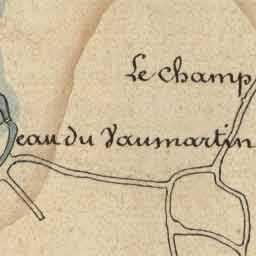 Le Champ
eau du Vaumartin